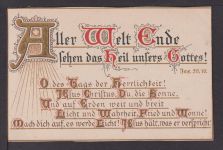 Aller Welt Ende
sehen das Heil unsers Gottes!
Jes. 52, 10.
O des Tags der Herrlichkeit!
Jesus Christus, Du die Sonne,
Und auf Erden weit und breit
Licht und Wahrheit, Fried und Wonne!
Mach dich auf, es werde Licht! Jesus hält, was er verspricht!